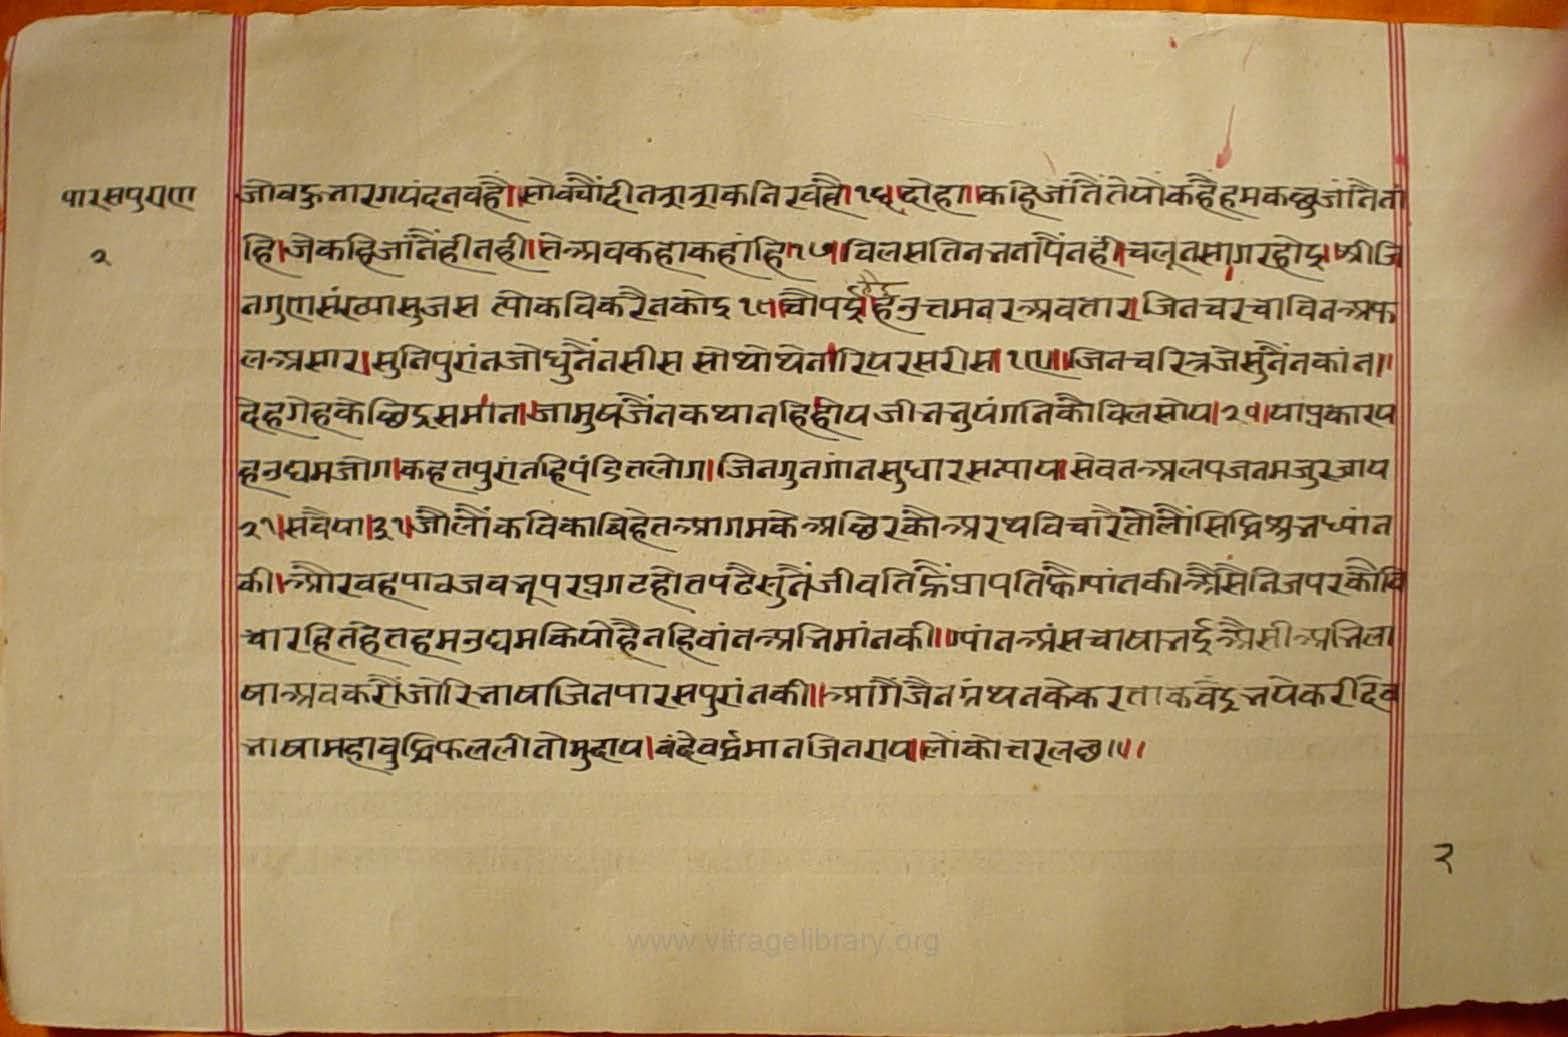 पारसपुराण
२
जो बहु भार गयंद न वहै॥ सो क्यौं दीन शशक निरवहै॥१६॥ दोहा॥ कहि जांनैं ते यों कहैं हम कछु जांनै नां
हि। जे कहि जांनैं ही नही॥ ते अब कहा कहांहि॥१७॥ विलसति न नतापै नही॥ चलू न सागर होइ॥ श्रीजि
नगुण संख्या सुजस त्यों कवि करै न कोइ १८॥ चौपई॥ है उत्तम नर अवतार। जिन चरचा विन अफ
ल असार॥ सुनि पुरांन जो धुनैं न सीस सो थोथे नारियर सरीस॥१९॥ जिन चरित्र जे सुनैं न कांन॥
देह गेह के छिद्र समांन॥ जा मुष जैन कथा नहि होय जीभ भुयंगनि कौ विल सोय॥२०॥ या प्रकार य
ह उद्यम जोग। कहत पुरांन हि पंडित लोग। जिन गुन गांन सुधारस न्याय। सेवत अलप जनम जुर जाय
२१॥ सवैया॥३१॥ जौ लौं कवि काबि हेत आगम के अछिर कौ अरथ विचारै तौ लौं सिद्धि शुभ ध्यांन
की॥ और वह पाठ जब भू पर प्रगट होत पढै सुनैं जीव तिन्हैं प्रापति ह्वै ग्यांन की॥ अैसै निज पर कौ वि
चार हित हेत हम उद्यम कियो है नहि वांन अभिमांन की॥ ग्यांन अंस चाषा भई अैसी अभिला
षा अब करौं जोरि भाषा जिन पारसपुरांन की॥ आगैं जैन ग्रंथन के करता कवेंद्र भये करी देव
भाषा महा बुद्धि फल लीनो मुदाय। बंदे वर्द्धमान जिन राय। लोकोत्तर लछ॥५॥
२
www.vitragelibrary.org